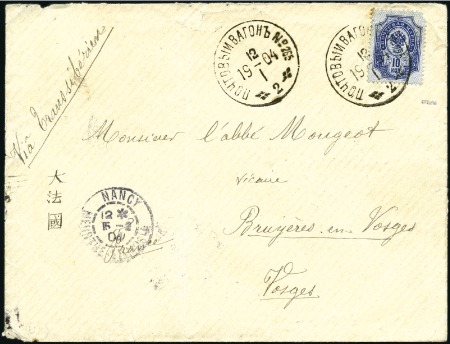 Via Transsibérien
ПОЧТОВЫЙ ВАГОНЪ № 265
12
19 - 04
1
2
ПОЧТОВЫЙ ВАГОНЪ
19
2
10
Monsieur l'abbé Mougeot
vicaire
Bruyères en Vosges
Vosges
大法國
NANCY
12
04